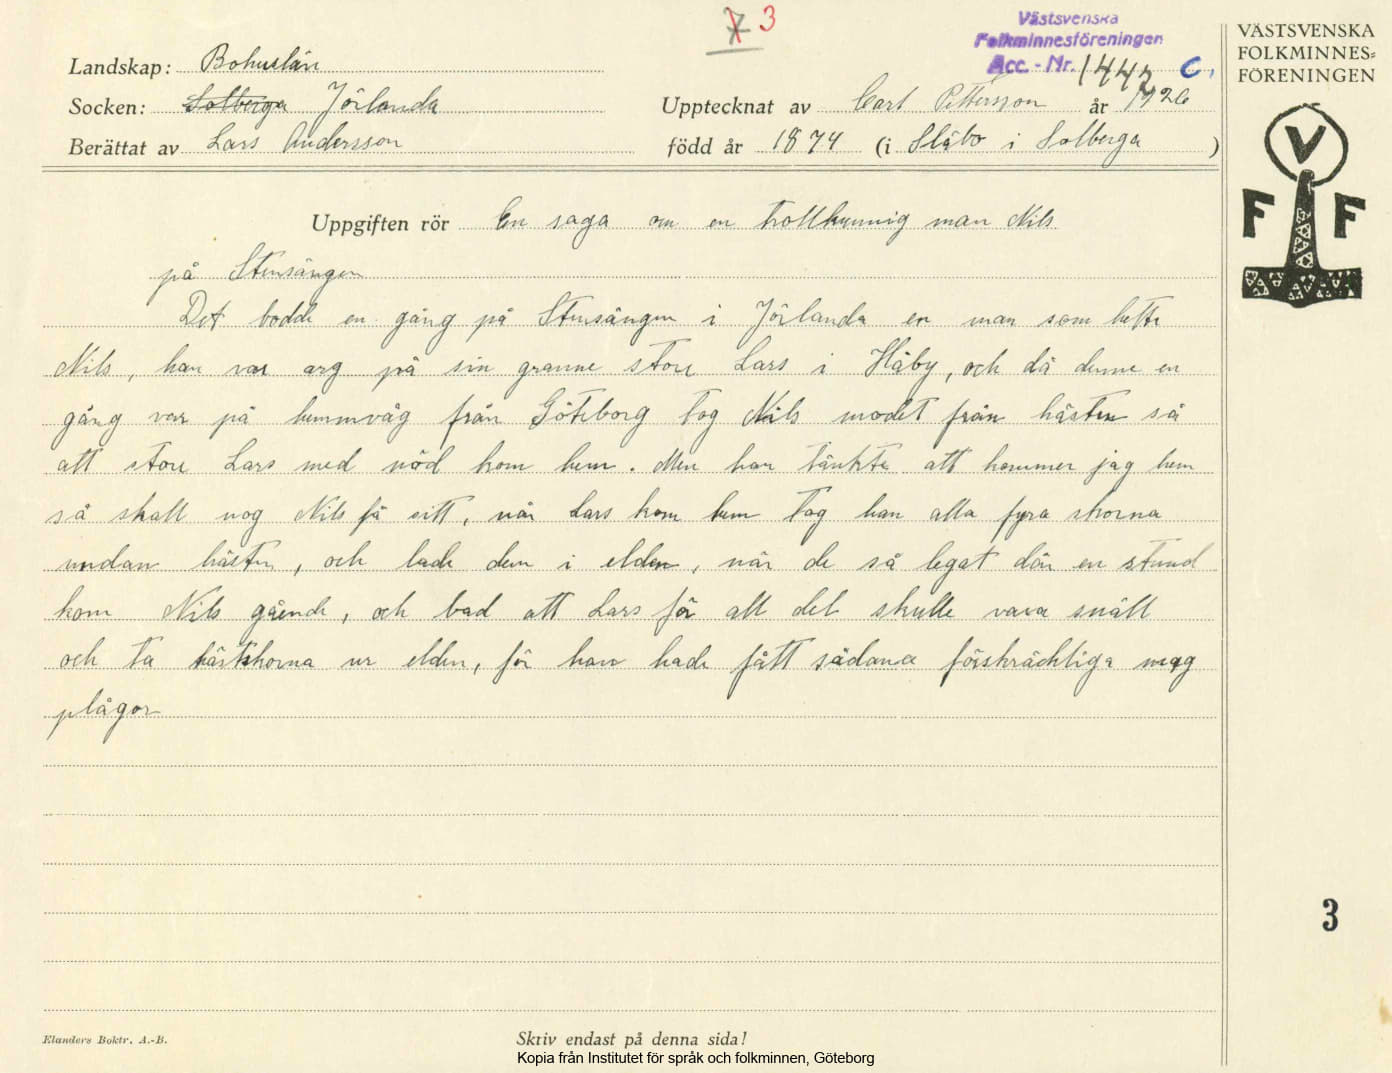 7 3
Västsvenska
Folkminnesföreningen
Acc. - Nr. 1442 C.
VÄSTSVENSKA
FOLKMINNES=
FÖRENINGEN
V
F F
Landskap: Bohuslän
Socken: Solberga Jörlanda
Upptecknat av Carl Pettersson år 1926
Berättat av Lars Andersson
född år 1874 (i Släbo i Solberga )
Uppgiften rör En saga om en trollkunnig man Nils
på Stensängen
Det bodde en gång på Stensängen i Jörlanda en man som hette
Nils, han var arg på sin granne store Lars i Håby, och då denne en
gång var på hemmväg från Göteborg tog Nils modet från hästen så
att store Lars med nöd kom hem. Men han tänkte att kommer jag hem
så skall nog Nils få sitt, när Lars kom hem tog han alla fyra skorna
undan hästen, och lade dem i elden, när de så legat där en stund
kom Nils gående, och bad att Lars för all del skulle vara snäll
och ta hästskorna ur elden, för han hade fått sådana förskräckliga mag
plågor
3
Elanders Boktr. A.-B.
Skriv endast på denna sida!
Kopia från Institutet för språk och folkminnen, Göteborg